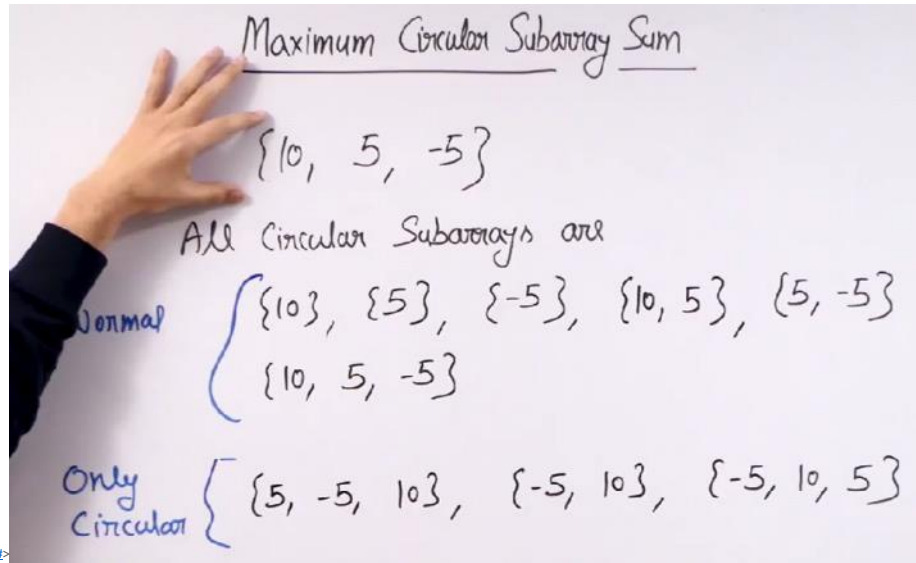 Maximum Circular Subarray Sum
{10, 5, -5}
All Circular Subarrays are
Normal
{10}, {5}, {-5}, {10, 5}, {5, -5}
{10, 5, -5}
Only
Circular
{5, -5, 10}, {-5, 10}, {-5, 10, 5}